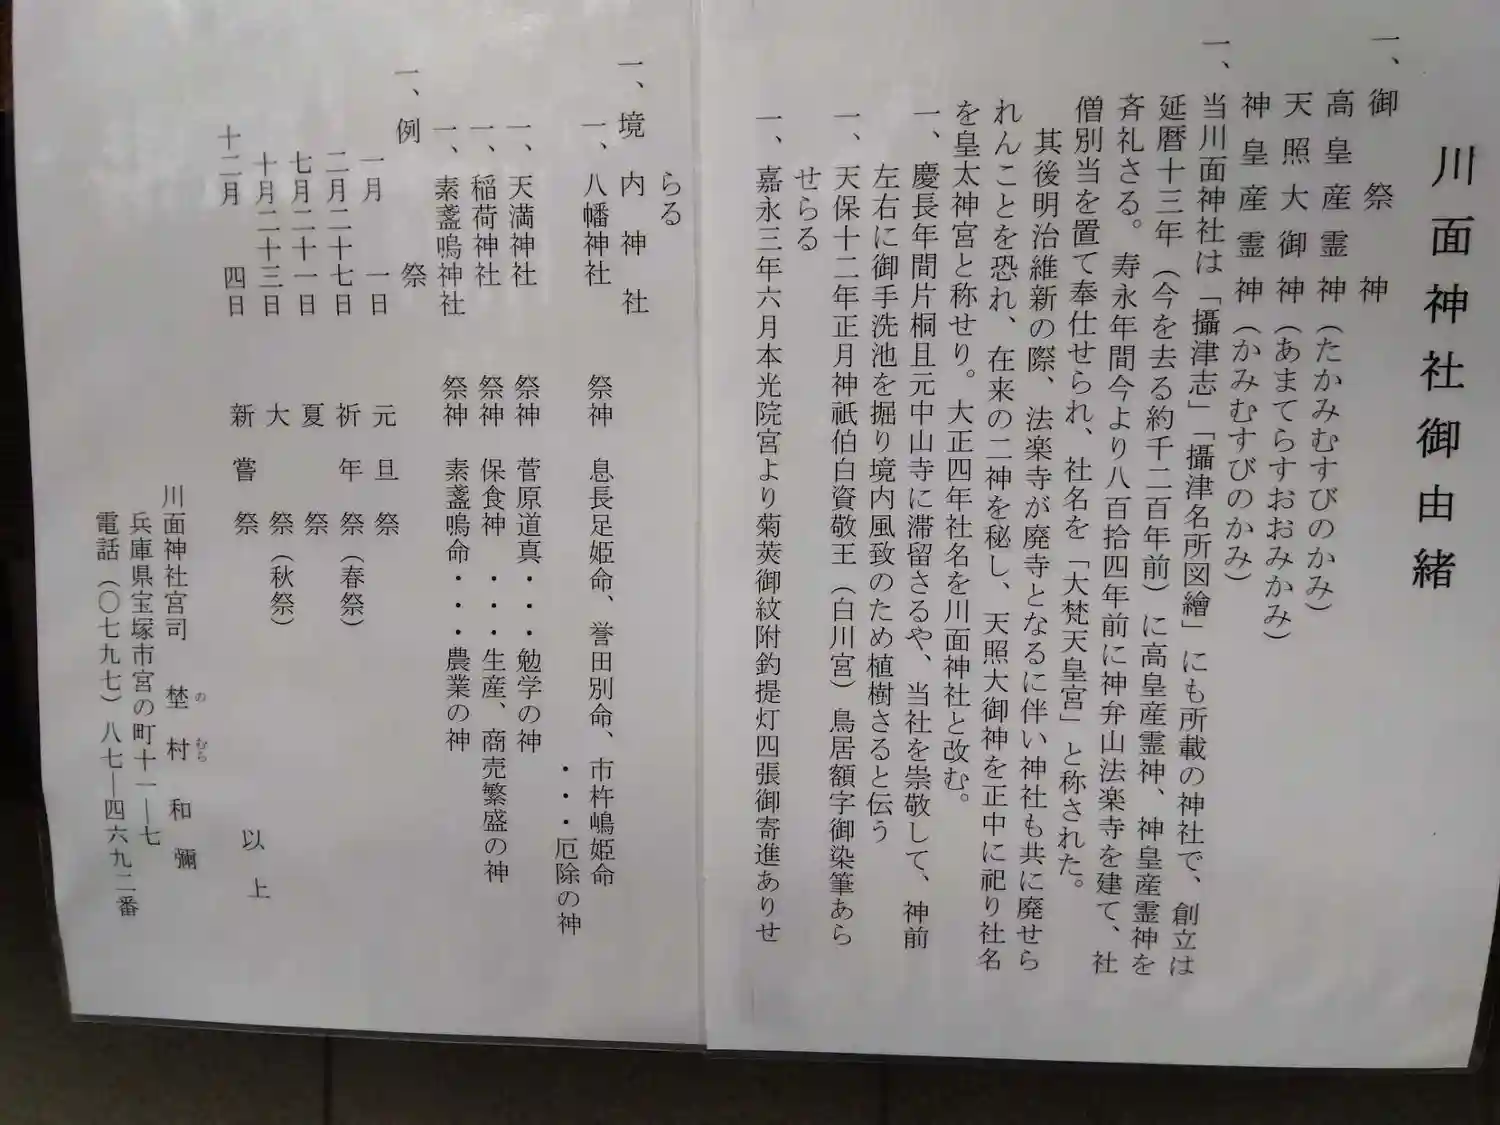 川面神社御由緒
一、御祭神
高皇産霊神（たかみむすびのかみ）
天照大御神（あまてらすおおみかみ）
神皇産霊神（かみむすびのかみ）
一、当川面神社は「攝津志」「攝津名所図繪」にも所載の神社で、創立は
延暦十三年（今を去る約千二百年前）に高皇産霊神、神皇産霊神を
斉礼さる。寿永年間今より八百拾四年前に神弁山法楽寺を建て、社
僧別当を置て奉仕せられ、社名を「大梵天皇宮」と称された。
其後明治維新の際、法楽寺が廃寺となるに伴い神社も共に廃せら
れんことを恐れ、在来の二神を秘し、天照大御神を正中に祀り社名
を皇太神宮と称せり。大正四年社名を川面神社と改む。
一、慶長年間片桐且元中山寺に滞留さるや、当社を崇敬して、神前
左右に御手洗池を掘り境内風致のため植樹さると伝う
一、天保十二年正月神祇伯白資敬王（白川宮）鳥居額字御染筆あら
せらる
一、嘉永三年六月本光院宮より菊莢御紋附釣提灯四張御寄進ありせ
らる
一、境内神社
一、八幡神社　祭神　息長足姫命、誉田別命、市杵嶋姫命
・・・厄除の神
一、天満神社　祭神　菅原道真・・・勉学の神
一、稲荷神社　祭神　保食神　・・・生産、商売繁盛の神
一、素盞嗚神社　祭神　素盞嗚命・・・農業の神
一、例　祭
一月　一日　元旦祭
二月二十七日　祈年祭（春祭）
七月二十一日　夏　祭
十月二十三日　大　祭（秋祭）
十二月　四日　新嘗祭
以上
川面神社宮司　埜村和彌
の　むら
兵庫県宝塚市宮の町十一―七
電話（〇七九七）八七―四六九二番